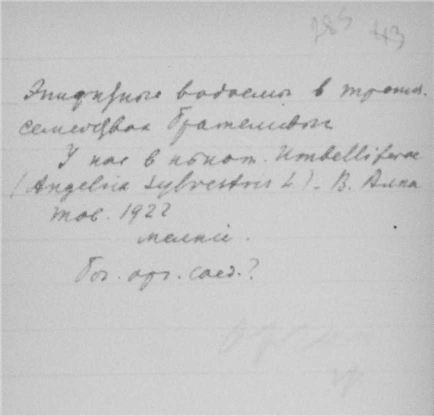 285 43
Эпифизные водоемы в тропич.
семействах Бромелиевых
У нас в некот. Umbelliferae
(Angelica sylvestris L). В. Алпа
тов. 1922
мелкие.
Бог. орг. соед.?